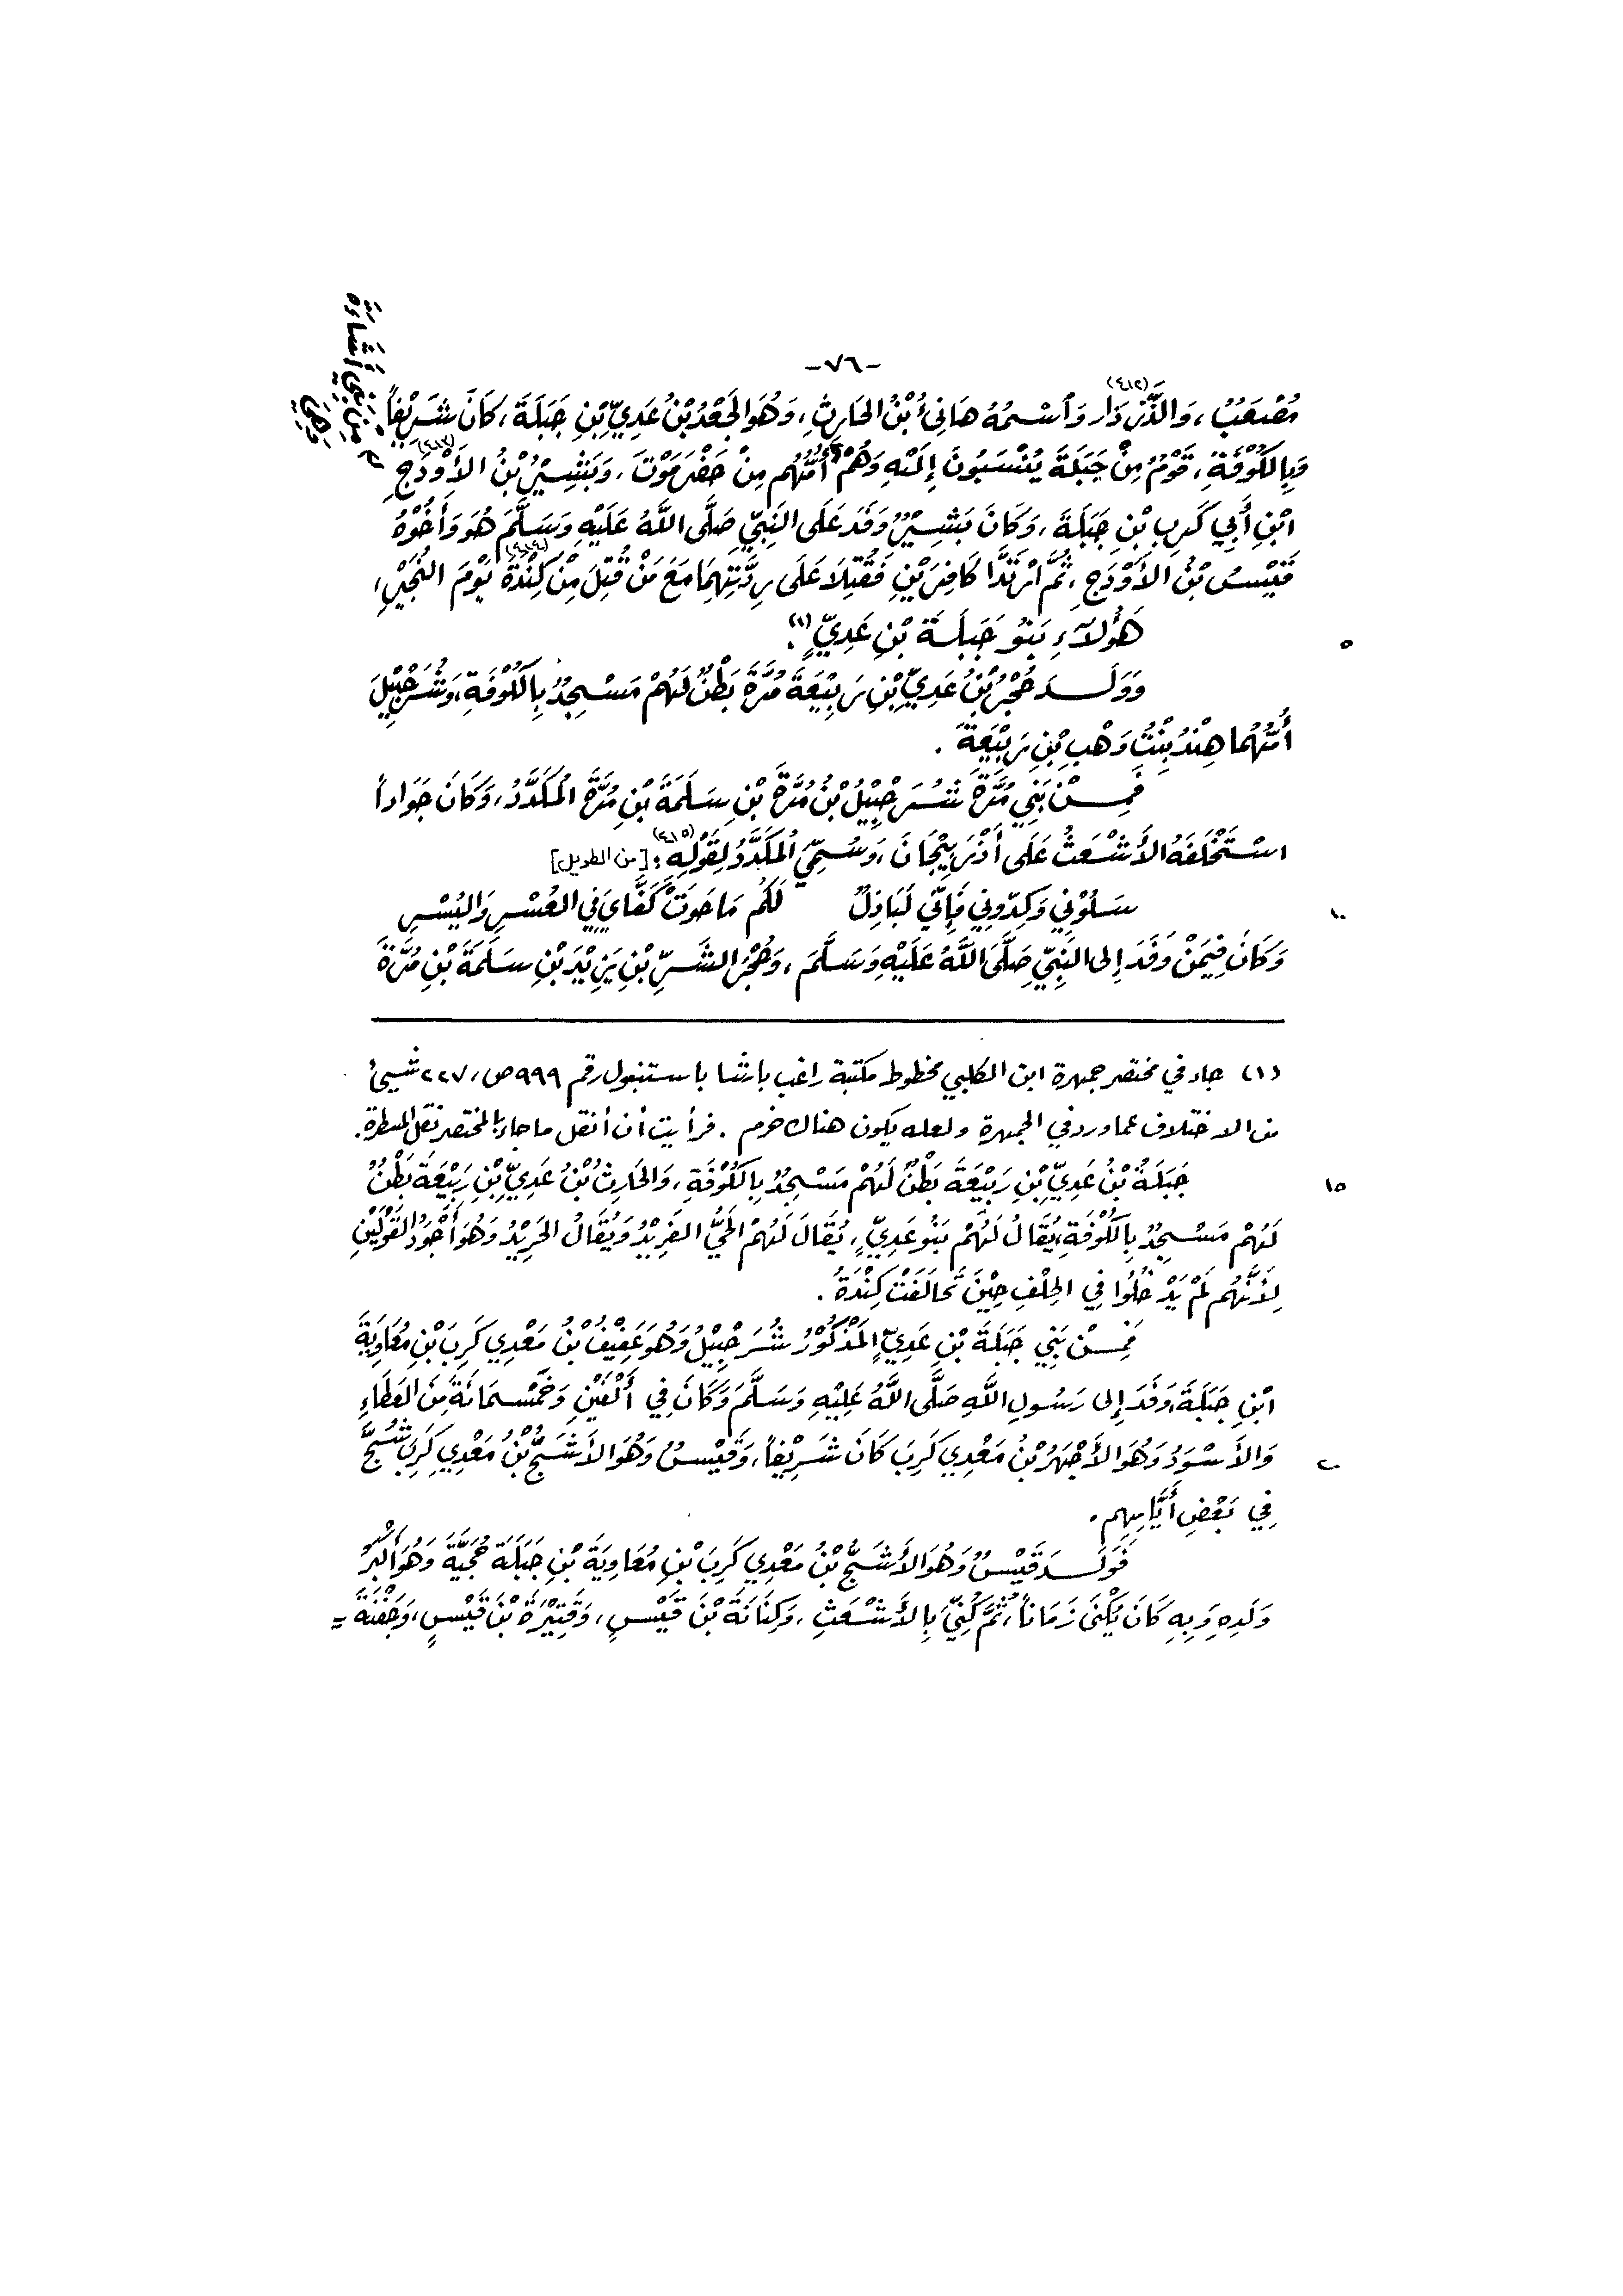 -٧٦-
مُصْعَبٌ، وَالذَّرْدَار(٤١٢) وَاسْمُهُ هَانِئُ بْنُ الحَارِثِ، وَهُوَ الجَعْدُ بْنُ عَدِيِّ بْنِ جَبَلَةَ، كَانَ شَرِيْفاً،
وَبِالكُوْفَةِ، قَوْمٌ مِنْ جَبَلَةَ يُنْسَبُونَ إِلَيْهِ وَهُمْ أُمُّهُم مِنْ حَضْرَمَوْتَ، وَبَشِيْرُ بْنُ الأَوْدَجِ(٤١٣)
ابْنِ أَبِي كَرِبِ بْنِ جَبَلَةَ، وَكَانَ بَشِيْرٌ وَفَدَ عَلَى النَبِيِّ صَلَّى اللَّهُ عَلَيْهِ وَسَلَّمَ هُوَ وَأَخُوْهُ
قَيْسُ بْنُ الأَوْدَجِ، ثُمَّ ارْتَدَّا كَافِرَيْنِ فَقُتِلَا عَلَى رِدَّتِهِمَا مَعَ مَنْ قُتِلَ مِنْ كِنْدَةَ(٤١٤) يَوْمَ النُجَيْرِ،
هَؤُلآءِ بَنُو جَبَلَةَ بْنِ عَدِيٍّ(١).
٥
وَوَلَـدَ حُجْرُ بْنُ عَدِيِّ بْنِ رَبِيْعَةَ مُرَّةَ بَطْنٌ لَهُمْ مَسْجِدٌ بِالكُوْفَةِ، وَشُرَحْبِيْلَ
أُمُّهُمَا هِنْدُ بِنْتُ وَهْبِ بْنِ رَبِيْعَةَ.
فَمِـنْ بَنِي مُرَّةَ شُرَحْبِيْلُ بْنُ مُرَّةَ بْنِ سَلَمَةَ بْنِ مُرَّةَ المُكَدَّدُ، وَكَانَ جَوَاداً
اسْتَخْلَفَهُ الأَشْعَثُ عَلَى أَذْرَبِيْجَانَ، وَسُمِّيَ المُكَدَّدُ لِقَوْلِهِ(٤١٥): [من الطويل]
سَلُوْنِي وَكِدّونِي فَإِنِّي لَبَاذِلٌ لَكُم مَا حَوَتْ كَفَّايَ فِي العُسْرِ وَاليُسْرِ
١٠
وَكَانَ فِيْمَنْ وَفَدَ إِلى النَبِيِّ صَلَّى اللَّهُ عَلَيْهِ وَسَلَّمَ، وَحُجْرُ الشَرِّ بْنِ يَزِيْدَ بْنِ سَلَمَةَ بْنِ مُرَّةَ
(١) جاء في مختصر جمهرة ابن الكلبي مخطوط مكتبة راغب باشا باستنبول رقم ٩٩٩ ص، ٢٢٧ شيئ
من الاختلاف عما ورد في الجمهرة ولعله يكون هناك خرم. فرأيت أن أنقل ما جاء بالمختصر نقل المسطرة.
جَبَلَةُ بْنُ عَدِيِّ بْنِ رَبِيْعَةَ بَطْنٌ لَهُمْ مَسْجِدٌ بِالكُوْفَةِ، وَالحَارِثُ بْنُ عَدِيِّ بْنِ رَبِيْعَةَ بَطْنٌ
١٥
لَهُمْ مَسْجِدٌ بِالكُوْفَةِ، يُقَالُ لَهُمْ بَنُو عَدِيٍّ، يُقَالَ لَهُمْ الحَيُّ الفَرِيْدُ وَيُقَالُ الحَرِيْدُ وَهُوَ أَجْوَدُ القَوْلَيْنِ
لِأَنَّهُم لَمْ يَدْخُلُوا فِي الحِلْفِ حِيْنَ تَحَالَفَتْ كِنْدَةُ.
فَمِـنْ بَنِي جَبَلَةَ بْنِ عَدِيٍّ المَذْكُوْرُ شُرَحْبِيْلُ وَهُوَ عَفِيْفُ بْنُ مَعْدِي كَرِبَ بْنِ مُعَاوِيَةَ
ابْنِ جَبَلَةَ، وَفَدَ إِلى رَسُولِ اللَّهِ صَلَّى اللَّهُ عَلِيْهِ وَسَلَّمَ وَكَانَ فِي أَلْفَيْنِ وَخَمْسِمَائَةَ مِنَ العَطَاءِ
وَالأَسْوَدُ وَهُوَ الأَجْهَرُ بْنُ مَعْدِي كَرِبَ كَانَ شَرِيْفاً، وَقَيْسُ وَهُوَ الأَشَجُّ بْنُ مَعْدِي كَرِبَ شُجَّ
٢٠
فِي بَعْضِ أَيَّامِهِم.
فَوَلَـدَ قَيْسٌ وَهُوَ الأَشَجُّ بْنُ مَعْدِي كَرِبَ بْنِ مُعَاوِيَةَ بْنِ جَبَلَةَ حُجَيَّةَ وَهُوَ أَكْبَرُ
وَلَدِهِ وَبِهِ كَانَ يُكْنَى زَمَاناً، ثُمَّ كُنِّيَ بِالأَشْعَثِ، وَكِنَانَةَ بْنَ قَيْسٍ، وَقَتِيْرَةَ بْنَ قَيْسٍ، وَجَفْنَةَ =